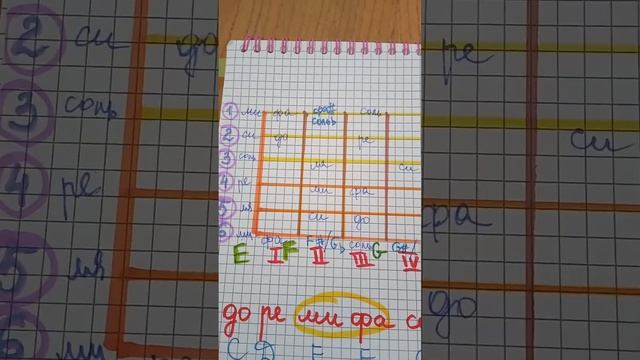 1 ми фа фа# соль
соль
2 си до ре
3 соль ля си
4 ре ми фа
5 ля си до
6 ми фа F#/G♭ соль G G#/
E I F II III IV
до ре ми фа с
C D E F
2 си до ре
3 соль си
4 ре фа
5 ля до
6